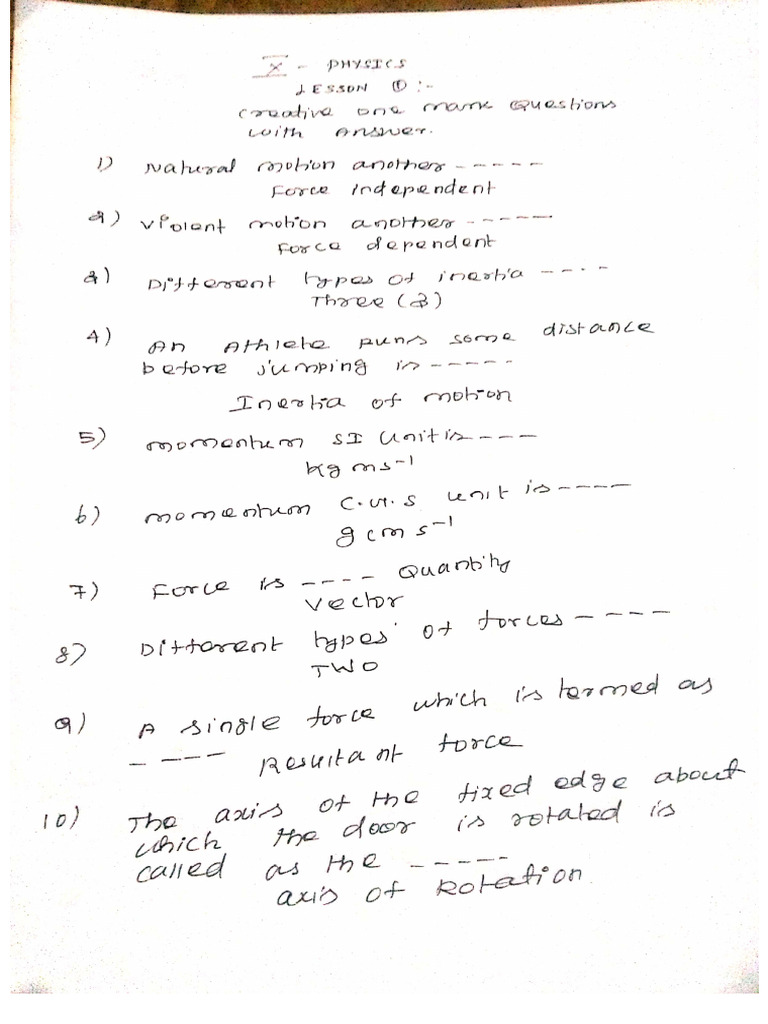 X - PHYSICS
LESSON ① :-
Creative one mark Questions
with Answer.
1) Natural motion another -----
Force independent
2) Violent motion another ------
Force dependent
3) Different types of inertia ----
Three (3)
4) An Athlete runs some distance
before jumping is -----
Inertia of motion
5) momentum SI Unit is ----
kg ms⁻¹
6) momentum C.G.S unit is ----
g cm s⁻¹
7) Force is ---- Quantity
Vector
8) Different types of forces ----
TWO
9) A single force which is termed as
----- Resultant force
10) The axis of the fixed edge about
which the door is rotated is
called as the -----
axis of Rotation